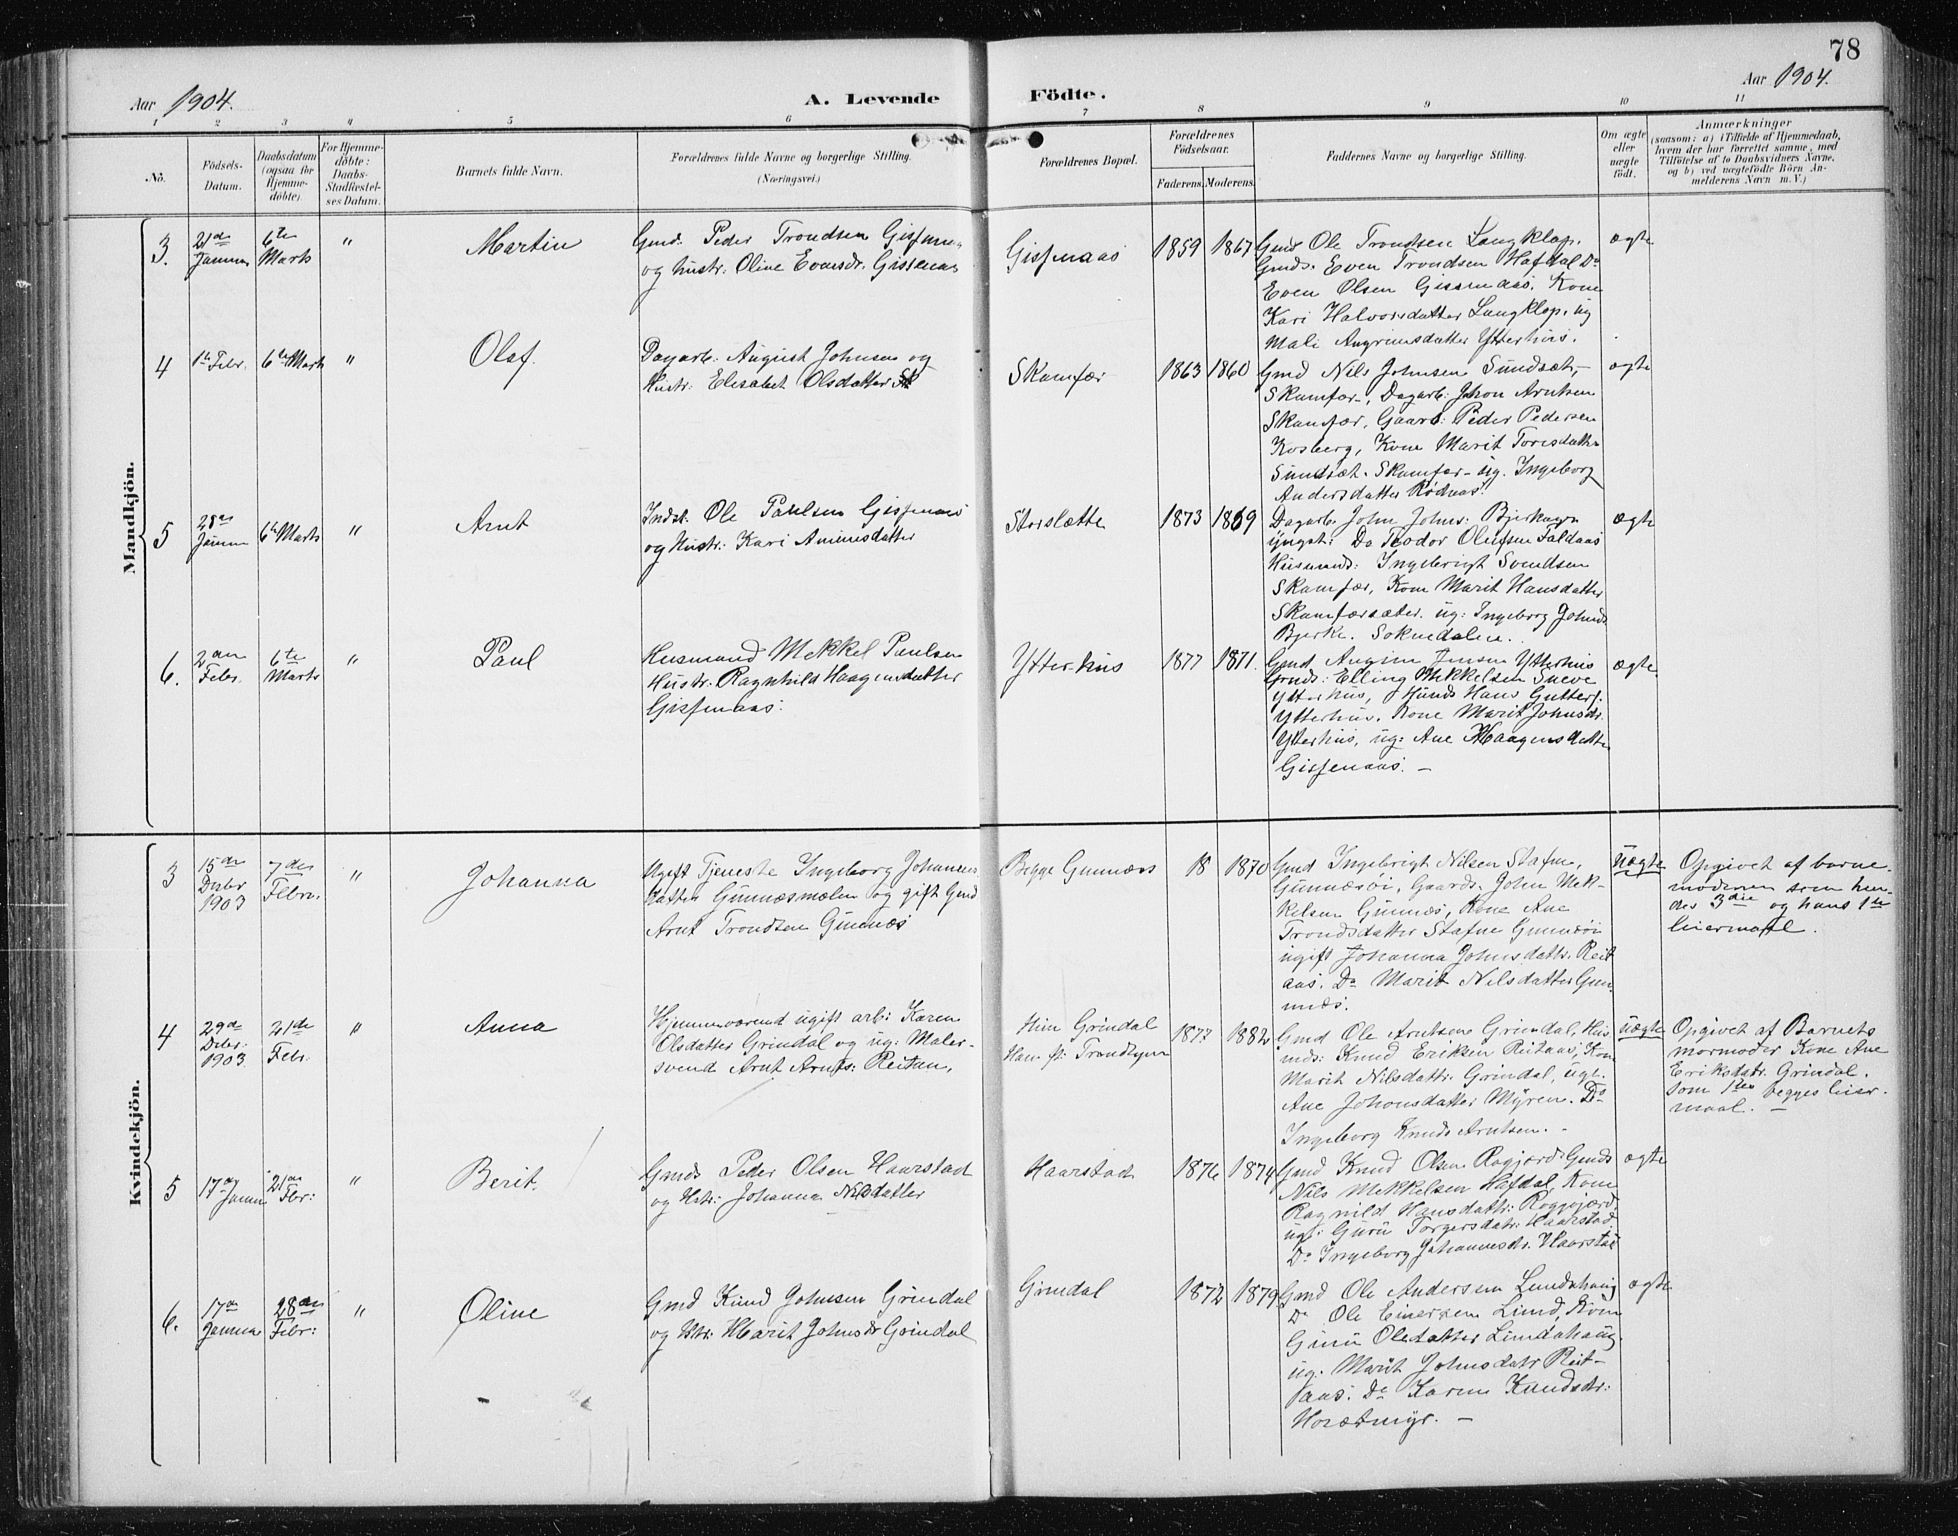 78
Aar 1904.
A. Levende Födte.
Aar 1904.
1 2 3 4 5 6 7 8 9 10 11
No.
Födsels-
Datum.
Daabsdatum
(ogsaa for
Hjemme-
døbte).
For Hjemme-
døbte:
Daabs-
Stadfæstel-
ses Datum.
Barnets fulde Navn.
Forældrenes fulde Navne og borgerlige Stilling.
(Næringsvei.)
Forældrenes Bopæl.
Forældrenes
Födselsaar.
Faderens. Moderens.
Faddernes Navne og borgerlige Stilling.
Om ægte
eller
uægte
födt.
Anmærkninger
(saasom: a) i Tilfælde af Hjemmedaab,
hvem der har forrettet samme, med
Tilföielse af to Daabsvidners Navne,
og b) ved uægtefödte Börn An-
melderens Navn m. V.)
Mandkjön.
3.
21de
6te
Marts
"
Martin
Gmd. Peder Trondsen
og hustr: Oline
Gissenaas
1859
1867
Gmd Ole Trondsen Langklop,
Gmds. Even Trondsen Hafdal Do
Even Olsen Gissenaas. Kone
Kari Halvorsdatter Langklop, ug
Mali Angrimsdatter Ytterhus.
ægte
4
1te Febr.
6te Marts
"
Olaf.
Dagarb. August Johnsen og
Hustr: Elisabet Olsdatter
Skamfær
1863
1860
Gmd Nils Johnsen Sundsæt,
Skamfær, Dagarb: Arntsen
Skamfær, Gaarb: Peder Pedersen
Kosberg, Kone Marit Toresdatter
Sundsæt. Skamfær ug. Ingeborg
Andersdatter Rødaas.
ægte
5
28de
6te Marts
"
Arnt
Indst. Ole Paulsen Gissenaas
og Hustr: Kari
Storslætte
1873
1869
Dagarb. John Johns:
yngst: Do Teodor Olufsen Faldaas
Husmands: Ingebrigt Svendsen
Skamfær, Kone Marit Hansdatter
Skamfærsæter. ug: Ingeborg
Bjerke. Soknedalen.
ægte
6.
2den
Febr.
6te
Marts
"
Paul
Husmand Mekkel Paulsen
Hustr: Ragnhild Haagensdatter
Gissenaas.
Ytterhus
1877
1871.
Gmd Jensen Ytterhus
Gmds: Elling Mekkelsen Sneve
Ytterhus, Hunds Hans
Ytterhus. Kone Marit Johnsdr.
Ytterhus, ug: Ane Haagensdatter
Gissenaas. —
ægte.
Kvindekjön.
3
15de
Desbr
1903
7des
Febr.
"
Johanna
Ugift Tjeneste Ingeborg Johannes
datter Gunnæsmælen og gift Gmd
Arnt Trondsen Gunnæs
Begge Gunnæs
18
1870
Gmd Ingebrigt Nilsen Stafne,
Gunnæsöi, Gaards. John Mek-
kelsen Gunnæs, Kone Ane
Trondsdatter Stafne Gunnæsöi
ugift Johanna Johnsdatr. Reit
aas. Do Marit Nilsdatter Gun-
næs.
uægte
Opgivet af barne-
moderen som hen-
des 3die og hans 1te
leiermaal.
4
29de
Debr.
1903
21de
Febr.
"
Anna
Hjemmeværend ugift arb: Karen
Olsdatter Grindal og ug: Maler-
svend Arnt Arnts: Reitan,
Hun Grindal
Han f:
1877
1882
Gmd Ole Arntsen Grindal. Hus
mds: Knud Eriksen Reitaas, Kone
Marit Nilsdattr. Grindal, ugt.
Ane Johonsdatter Myren. Do
Ingeborg Knuds Arntsen. -
uægte
Opgivet af Barnets
mormoder Kone Ane
Eriksdatr. Grindal.
som 1ste begges leier.
maal. —
5
17de
21de
"
Berit.
Gmds Peder Olsen Haarstad
og Hstr: Johanna Nilsdatter
Haarstad
1876
1874
Gmd Knud Olsen Gmds
Nils Mekkelsen Hafdal, Kone
Ragnild Hansdattr:
ug: Guru Torgersdatr: Haarstad
Do Ingeborg Johannesdr. Haarstad
ægte
6.
17de
28de
Febr:
"
Oline
Gmd Knud Johnsen Grindal
og Hstr: Marit Johnsdr Grindal
Grindal
1872
1879
Gmd Ole Andersen Lundahaug
Do Ole Einersen Lund, Kone
Guru Olsdatter Lundahaug,
ug. Marit Johnsdatr Reit-
aas. Do Karen Knudsdr:
—
ægte